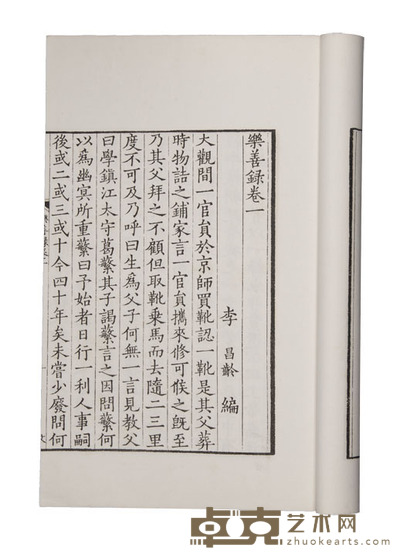 樂善録卷一
李昌齡編
大觀間一官員於京師買靴認一靴是其父葬
時物詰之鋪家言一官員攜來修可候之既至
乃其父拜之不顧但取靴乘馬而去隨二三里
度不可及乃呼曰生爲父子何無一言見教父
曰學鎮江太守葛蘩其子謁蘩言之因問蘩何
以爲幽冥所重蘩曰予始者日行一利人事嗣
後或二或三或十今四十年矣未嘗少廢問何
卓克艺术网
zhuokearts.com